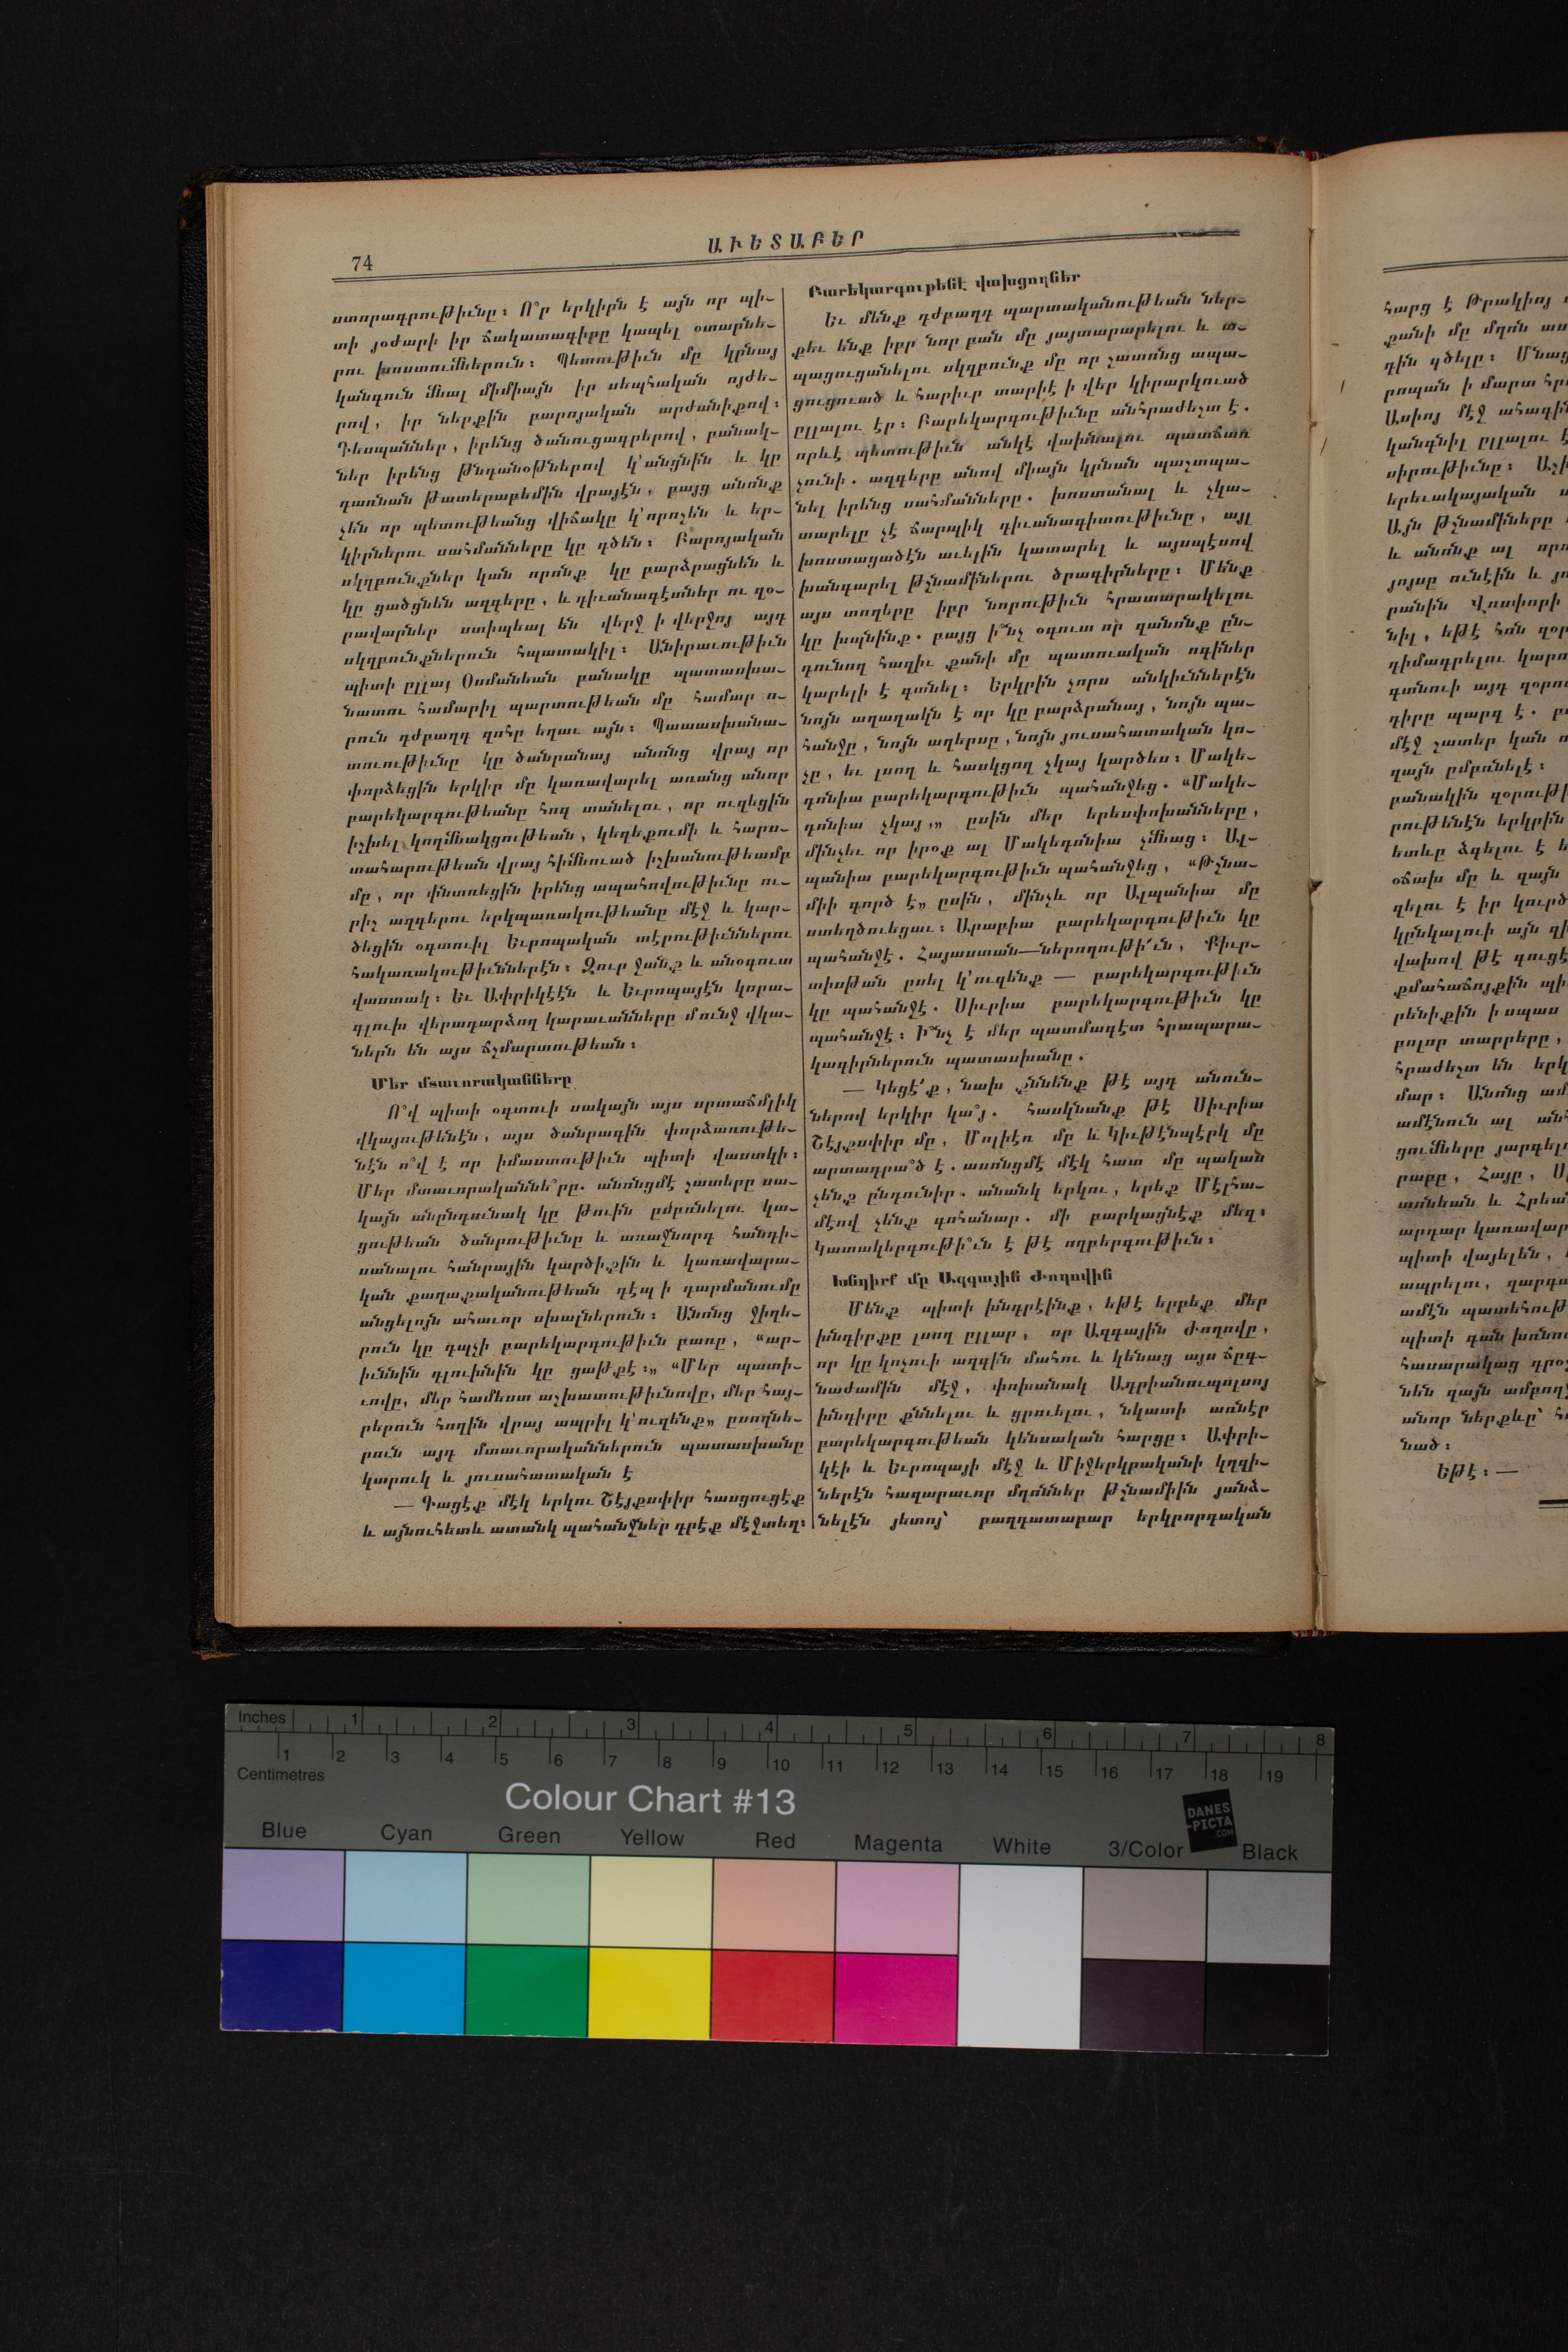 74
ԱՒԵՏԱԲԵՐ
ստորագրութիւնը։ Ո՞ր երկիրն է այն որ պի-
տի յօժարի իր ճակատագիրը կապել օտարնե-
րու խոստումներուն։ Պետութիւն մը կրնայ
կանգուն մնալ միմիայն իր սեպհական ոյժե-
րով, իր ներքին բարոյական արժանիքով։
Դեսպաններ, իրենց ծանուցագրերով, բանակ-
ներ իրենց թնդանօթներով կ՚անցնին և կը
դառնան թատերաբեմին վրայէն, բայց անոնք
չեն որ պետութեանց վիճակը կ՚որոշեն և եր-
կիրներու սահմանները կը գծեն։ Բարոյական
սկզբունքներ կան որոնք կը բարձրացնեն և
կը ցածցնեն ազգերը, և դիւանագէտներ ու զօ-
րավարներ ստիպեալ են վերջ ի վերջոյ այդ
սկզբունքներուն հպատակիլ։ Անիրաւութիւն
պիտի ըլլայ Օսմանեան բանակը պատասխա-
նատու համարիլ պարտութեան մը համար ո-
րուն դժբաղդ զոհը եղաւ այն։ Պատասխանա-
տուութիւնը կը ծանրանայ անոնց վրայ որ
փորձեցին երկիր մը կառավարել առանց անոր
բարեկարգութեանը հոգ տանելու, որ ուզեցին
իշխել կողմնակցութեան, կեղեքումի և հարս-
տահարութեան վրայ հիմնուած իշխանութեամբ
մը, որ փնտռեցին իրենց ապահովութիւնը ու-
րիշ ազգերու երկպառակութեանը մէջ և կար-
ծեցին օգտուիլ Եւրոպական տէրութիւններու
հակառակութիւններէն։ Զուր ջանք և անօգուտ
վաստակ։ Եւ Ափրիկէէն և Եւրոպայէն կորա-
գլուխ վերադարձող կարաւանները մունջ վկա-
ներն են այս ճշմարտութեան։
Մեր մտաւորականները
Ո՞վ պիտի օգտուի սակայն այս սրտաճմլիկ
վկայութենէն, այս ծանրագին փորձառութե-
նէն ո՞վ է որ իմաստութիւն պիտի վաստկի։
Մեր մտաւորականնե՞րը. անոնցմէ շատերը սա-
կայն անընդունակ կը թուին ըմբռնելու կա-
ցութեան ծանրութիւնը և առաջնորդ հանդի-
սանալու հանրային կարծիքին և կառավարա-
կան քաղաքականութեան դէպ ի դարմանումը
անցելոյն ահաւոր սխալներուն։ Անոնց ջիղե-
րուն կը դպչի բարեկարգութիւն բառը, «ար-
իւնին գլուխնին կը ցաթքէ։» «Մեր պատի-
ւովը, մեր համեստ աշխատութիւնովը, մեր հայ-
րերուն հողին վրայ ապրիլ կ՚ուզենք» ըսողնե-
րուն այդ մտաւորականներուն պատասխանը
կարուկ և յուսահատական է
— Գացէք մէկ երկու Շէյքսփիր հասցուցէք
և այնուհետև ատանկ պահանջներ դրէք մէջտեղ։
Բարեկարգութենէ վախցողներ
Եւ մենք դժբաղդ պարտականութեան ներ-
քեւ ենք իբր նոր բան մը յայտարարելու և ա-
պացուցանելու սկզբունք մը որ շատոնց ապա-
ցուցուած և հարիւր տարիէ ի վեր կիրարկուած
ըլլալու էր։ Բարեկարգութիւնը անհրաժեշտ է.
որևէ պետութիւն անկէ վախնալու պատճառ
չունի. ազգերը անով միայն կրնան պաշտպա-
նել իրենց սահմանները. խոստանալ և չկա-
տարելը չէ ճարպիկ դիւանագիտութիւնը, այլ
խոստացածէն աւելին կատարել և այսպէսով
խանգարել թշնամիներու ծրագիրները։ Մենք
այս տողերը իբր նորութիւն հրատարակելու
կը խպնինք. բայց ի՞նչ օգուտ որ զանոնք ըն-
դունող հազիւ քանի մը պատուական ոգիներ
կարելի է գտնել։ Երկրին չորս անկիւններէն
նոյն աղաղակն է որ կը բարձրանայ, նոյն պա-
հանջը, նոյն աղերսը, նոյն յուսահատական կո-
չը, եւ լսող և հասկցող չկայ կարծես։ Մակե-
դոնիա բարեկարգութիւն պահանջեց. «Մակե-
դոնիա չկայ,» ըսին մեր երեսփոխանները,
մինչեւ որ իրօք ալ Մակեդոնիա չմնաց։ Ալ-
պանիա բարեկարգութիւն պահանջեց, «Թշնա-
միի գործ է» ըսին, մինչև որ Ալպանիա մը
ստեղծուեցաւ։ Արաբիա բարեկարգութիւն կը
պահանջէ. Հայաստան—ներողութի՛ւն, Քիւր-
տիսթան ըսել կ՚ուզենք — բարեկարգութիւն
կը պահանջէ. Սիւրիա բարեկարգութիւն կը
պահանջէ։ Ի՞նչ է մեր պատմագէտ հրապարա-
կագիրներուն պատասխանը.
— Կեցէ՛ք, նախ քննենք թէ այդ անուն-
ներով երկիր կա՞յ. հասկնանք թէ Սիւրիա
Շէյքսփիր մը, Մոլիէռ մը և Կիւթէնպէրկ մը
արտադրա՞ծ է. ասոնցմէ մէկ հատ մը պակաս
չենք ընդունիր. անանկ երկու, երեք Մէլհա-
մէով չենք գոհանար. մի բարկացնէք մեզ։
Կատակերգութի՞ւն է թէ ողբերգութիւն։
Խնդիրք մը Ազգային Ժողովին
Մենք պիտի խնդրէինք, եթէ երբեք մեր
խնդիրքը լսող ըլլար, որ Ազգային Ժողովը,
որ կը կոչուի ազգին մահու և կենաց այս ճըգ-
նաժամին մէջ, փոխանակ Ադրիանուպոլսոյ
խնդիրը քննելու և ցրուելու, նկատի առնէր
բարեկարգութեան կենսական հարցը։ Ափրի-
կէի և Եւրոպայի մէջ և Միջերկրականի կղզի-
ներէն հազարաւոր մղոններ թշնամիին յանձ-
նելէն յետոյ՝ բաղդատաբար երկրորդական
հարց է Թրակիոյ
քանի մը մղոն
դին գծելը։
րոպան ի մարտ
Ասիոյ մէջ
կանգնիլ ըլլալու է
սիրութիւնը։
երեւակայական
Այն թշնամիները
և անոնք ալ
յոյսը ունէին և
բանին Վոսփորի
նիլ, եթէ հոն
դիմադրելու
գտնուի այդ
դիրը պարզ է.
մէջ շատեր կան
զայն ըմբռնելէ։
բանակին
րութենէն երկրին
ետևը ձգելու է
օճախ մը և զայն
զելու է իր
կընկալուի այն
վախով թէ
քմահաճոյքին
րենիքին ի սպաս
բոլոր տարրերը,
հրաժեշտ են
մար։ Անոնց
ամէնուն ալ
ցումները
րաբը, Հայը,
և Հրեան
արդար
պիտի վայելեն,
ապրելու,
ամէն
պիտի գան
հասարակաց
նեն զայն
անոր ներքևը՝
նած։
Եթէ։ —
Inches 1 2 3 4 5 6 7 8
1 2 3 4 5 6 7 8 9 10 11 12 13 14 15 16 17 18 19
Centimetres
Colour Chart #13
DANES
-PICTA
.COM
Blue Cyan Green Yellow Red Magenta White 3/Color Black